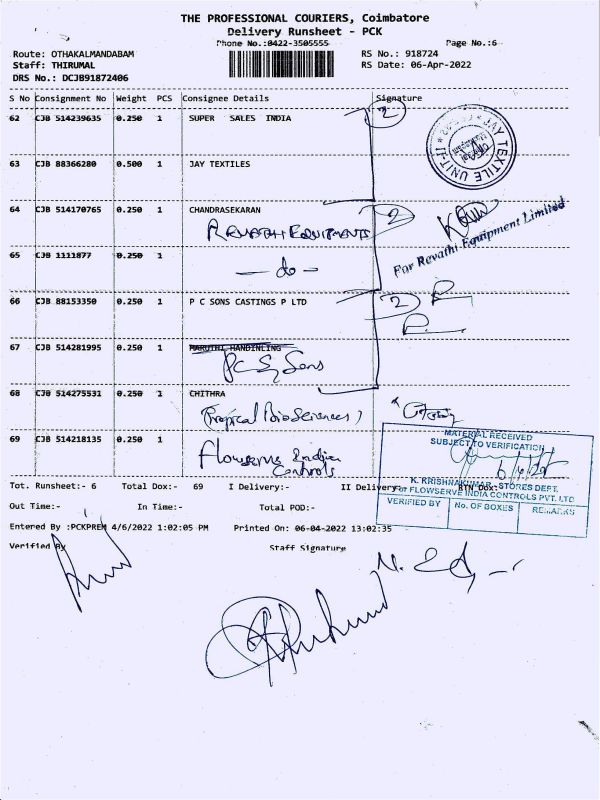 THE PROFESSIONAL COURIERS, Coimbatore
Delivery Runsheet - PCK
Phone No.:0422-3505555 Page No.:6
Route: OTHAKALMANDABAM RS No.: 918724
Staff: THIRUMAL RS Date: 06-Apr-2022
DRS No.: DCJB91872406
S No Consignment No Weight PCS Consignee Details Signature
62 CJB 514239635 0.250 1 SUPER SALES INDIA 2
JAY TEXTILE UNIT-II
63 CJB 88366280 0.500 1 JAY TEXTILES
64 CJB 514170765 0.250 1 CHANDRASEKARAN 2
REVATHI EQUIPMENTS
For Revathi Equipment Limited
65 CJB 1111877 0.250 1
- do -
66 CJB 88153350 0.250 1 P C SONS CASTINGS P LTD 2
67 CJB 514281995 0.250 1 MARUTHI HANDINLING
P.C. Sons
68 CJB 514275531 0.250 1 CHITHRA
(Tropical BioSciences)
69 CJB 514218135 0.250 1
Flowserve Indian
Controls
MATERIAL RECEIVED
SUBJECT TO VERIFICATION
6/4/22
K. KRISHNAKUMAR - STORES DEPT.
For FLOWSERVE INDIA CONTROLS PVT. LTD
VERIFIED BY No. OF BOXES REMARKS
Tot. Runsheet:- 6 Total Dox:- 69 I Delivery:- II Delivery:- RTN Dox:-
Out Time:- In Time:- Total POD:-
Entered By :PCKPREM 4/6/2022 1:02:05 PM Printed On: 06-04-2022 13:02:35
Verified By Staff Signature